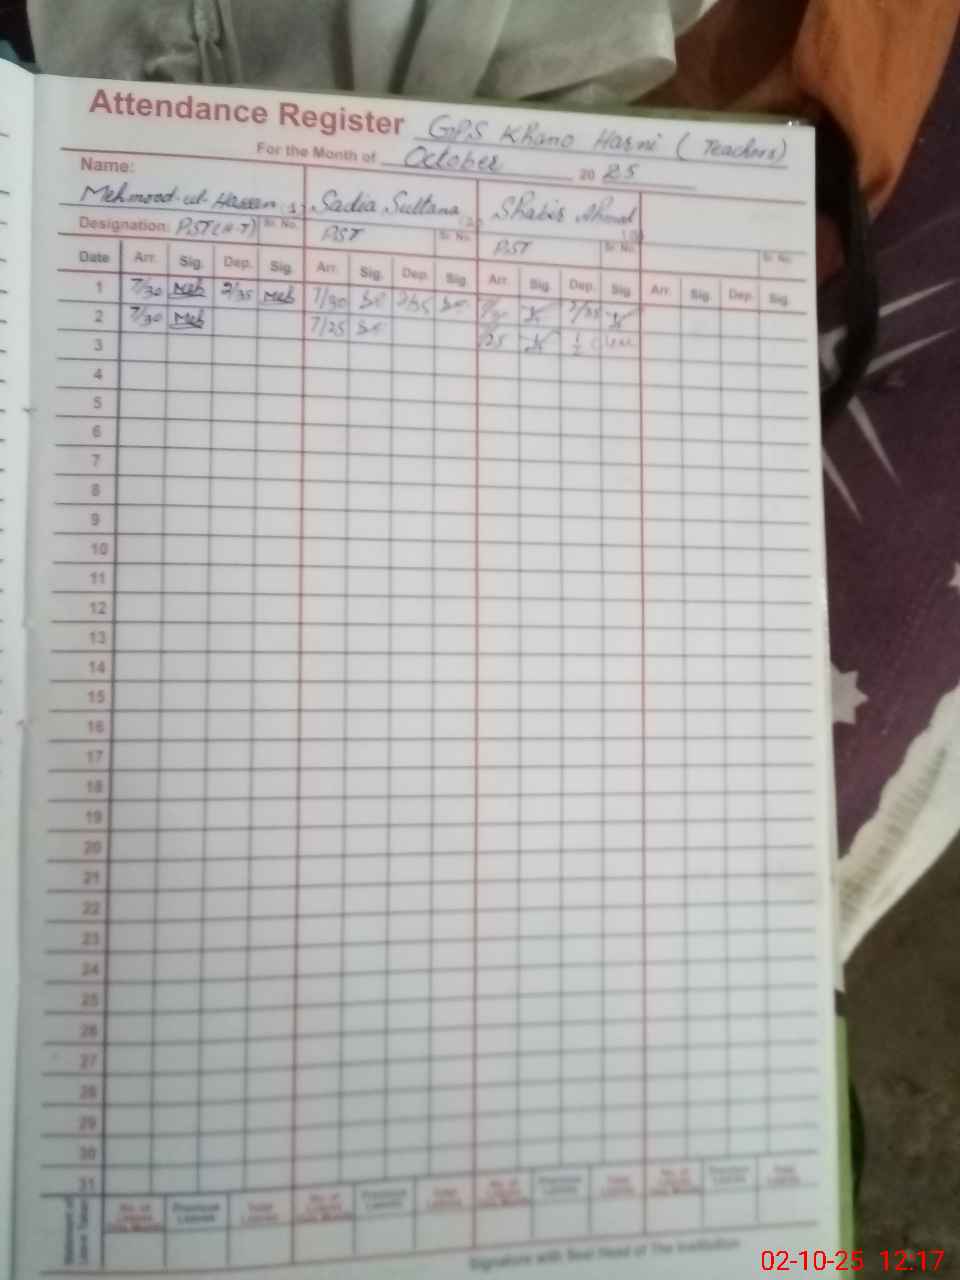 Attendance Register GPS Khano Harni (Teachers)
For the Month of October 20 25
Name:
Mehmood-ul-Hassan Sadia Sultana Shabir Ahmad
Designation: PST (H-T) Sr. No. PST Sr. No. PST Sr. No. Sr. No.
Date Arr. Sig. Dep. Sig. Arr. Sig. Dep. Sig. Arr. Sig. Dep. Sig. Arr. Sig. Dep. Sig.
1 7/30 Meh 2/35 Meh 7/30 2/35 7/30 2/35
2 7/30 Meh 7/25 7/25 1/2
3
4
5
6
7
8
9
10
11
12
13
14
15
16
17
18
19
20
21
22
23
24
25
26
27
28
29
30
31
No. of Leaves This Month Previous Leaves Total Leaves No. of Leaves This Month Previous Leaves Total Leaves No. of Leaves This Month Previous Leaves Total Leaves No. of Leaves This Month Previous Leaves Total Leaves
Signature with Seal Head of The Institution
02-10-25 12.17